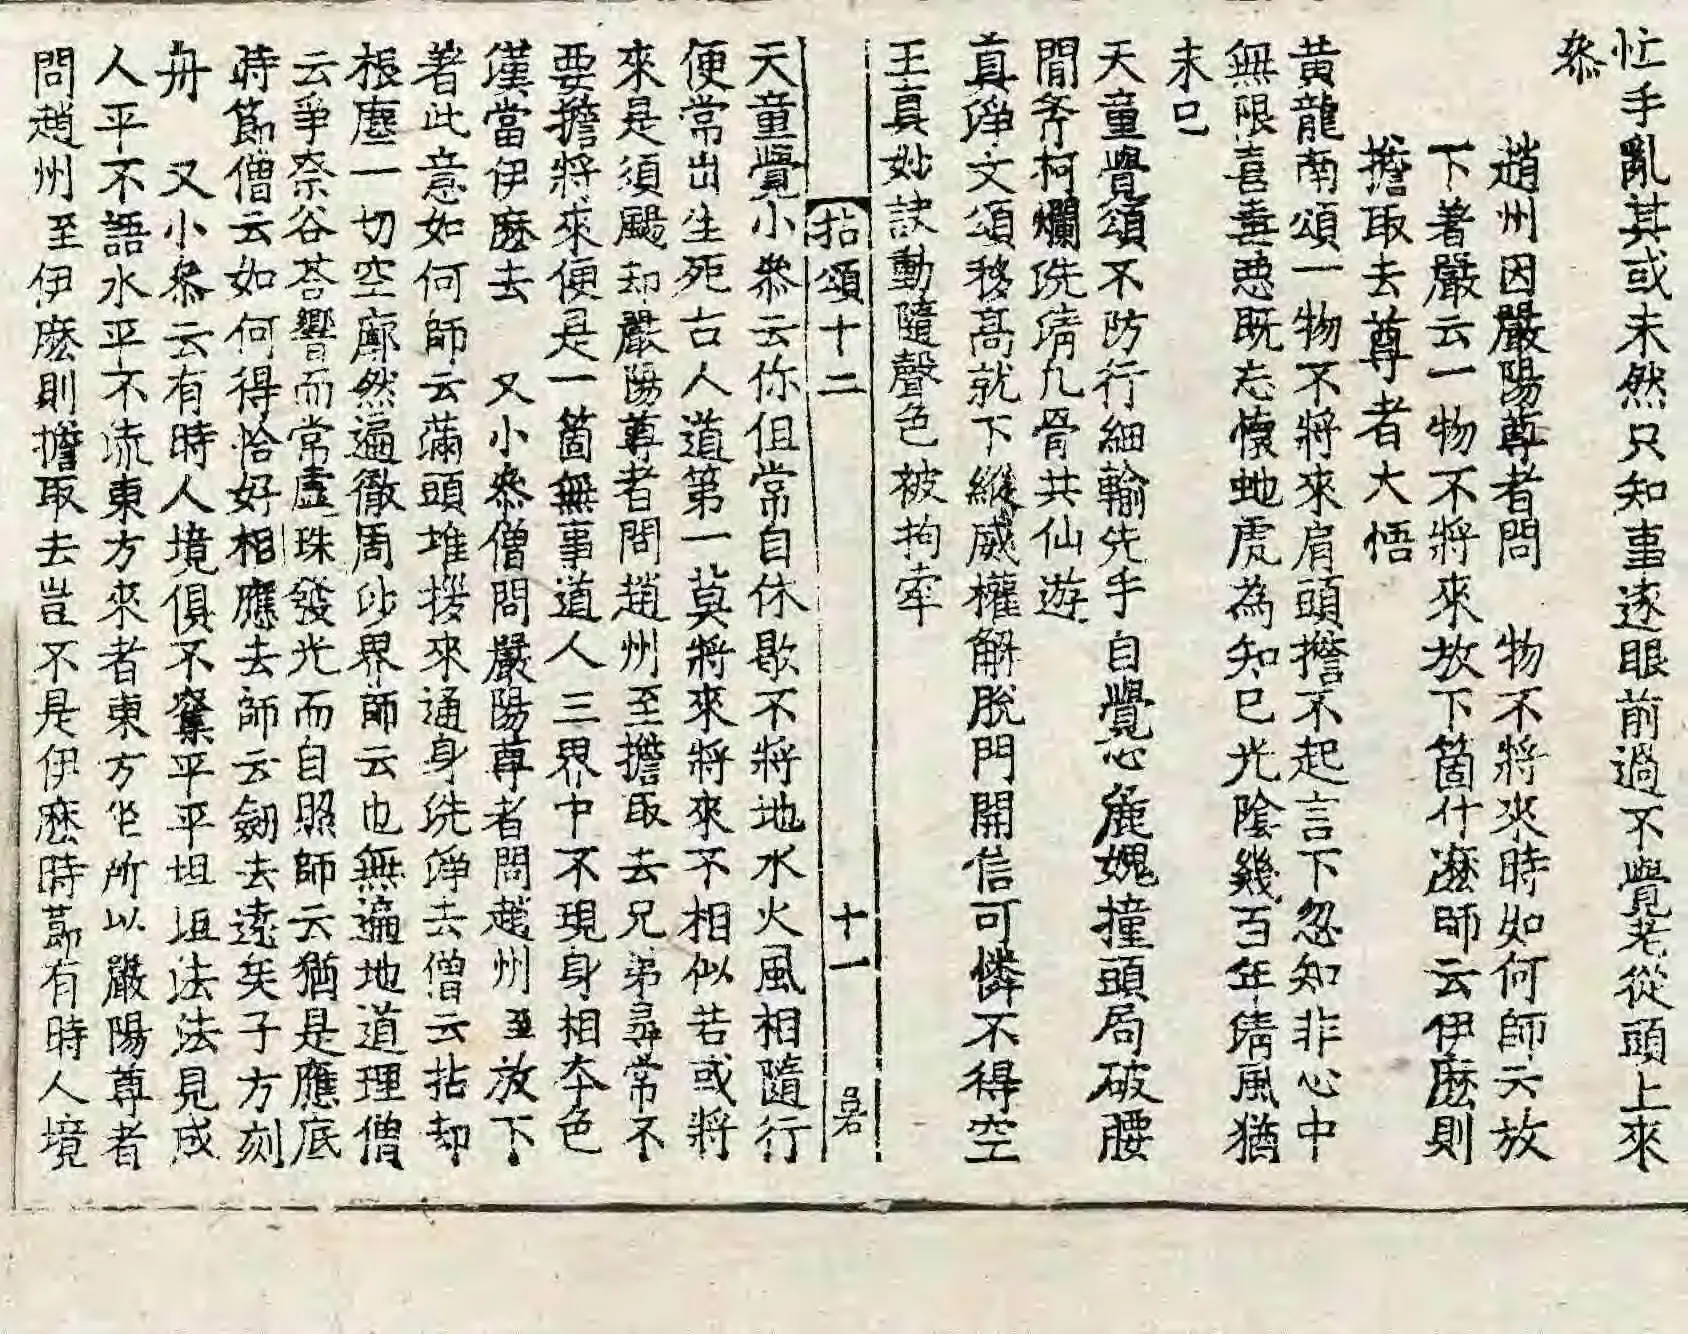 忙手亂其或未然只知事逐眼前過不覺老從頭上來
叅
趙州因嚴陽尊者問 物不將來時如何師云放
下著嚴云一物不將來放下箇什麽師云伊麽則
擔取去尊者大悟
黃龍南頌一物不將來肩頭擔不起言下忽知非心中
無限喜毒惡旣忘懷蛇虎為知已光陰幾百年淸風猶
未已
天童覺頌不防行細輸先手自覺心麁媿撞頭局破腰
間斧柯爛洗淸凡骨共仙遊
真淨文頌移高就下縱威權解脫門開信可憐不得空
王真妙訣動隨聲色被拘牽
拈頌十二 十一
天童覺小叅云你但常自休歇不將地水火風相隨行
便常出生死古人道第一莫將來將來不相似若或將
來是須颺却嚴陽尊者問趙州至擔取去兄弟尋常不
要擔將來便是一箇無事道人三界中不現身相夲色
漢當伊麽去 又小叅僧問嚴陽尊者問趙州至放下
著此意如何師云滿頭堆撥來通身洗淨去僧云拈却
根塵一切空廓然遍徹周沙界師云也無遍地道理僧
云爭奈谷荅響而常虛珠發光而自照師云猶是應底
時節僧云如何得恰好相應去師云劒去遠矣子方刻
舟 又小叅云有時人境俱不奪平平坦坦法法見成
人平不語水平不流東方來者東方坐所以嚴陽尊者
問趙州至伊麽則擔取去豈不是伊麽時莭有時人境